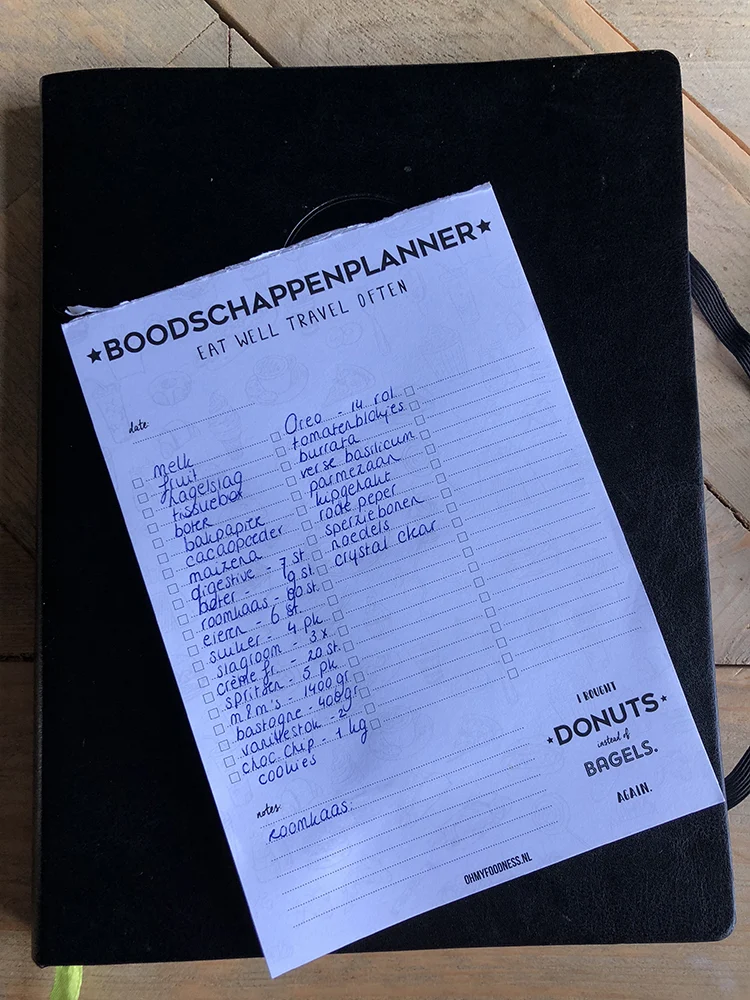 ★BOODSCHAPPENPLANNER★
EAT WELL TRAVEL OFTEN
date:
melk
fruit
hagelslag
tissuebox
boter
bakpapier
cacaopoeder
maizena
digestive - 7 st.
boter - 9 st.
roomkaas - 80 st.
eieren - 6 st.
suiker - 4 pk
slagroom - 3x
crème fr. - 20 st.
spritsen - 5 pk
m&m's - 1400 gr
bastogne - 400gr
vanillestok - 2
choc. chip - 1 kg
cookies
Oreo - 14 rol
tomatenblokjes
burrata
verse basilicum
parmezaan
kipgehakt
rode peper
sperziebonen
noedels
crystal clear
notes:
roomkaas:
I BOUGHT
★DONUTS★
instead of
BAGELS.
AGAIN.
OHMYFOODNESS.NL